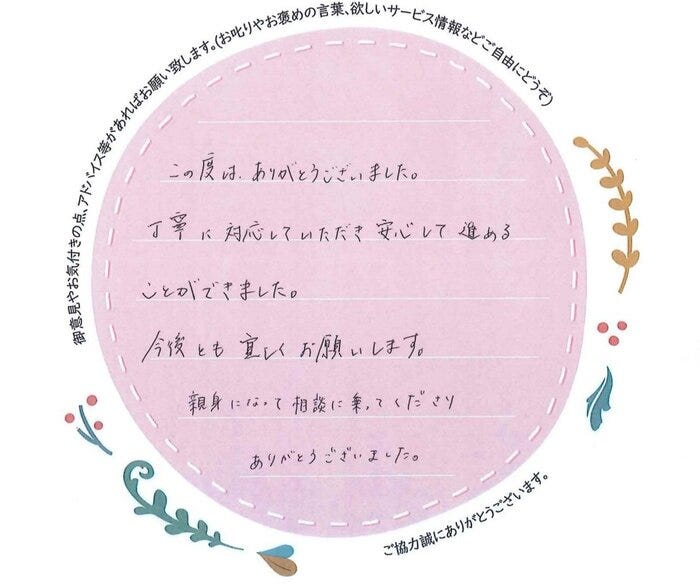 御意見やお気付きの点、アドバイス等があればお願い致します。(お叱りやお褒めの言葉、欲しいサービス情報などご自由にどうぞ)
この度は、ありがとうございました。
丁寧に対応していただき安心して進める
ことができました。
今後とも宜しくお願いします。
親身になって相談に乗ってくださり
ありがとうございました。
ご協力誠にありがとうございます。